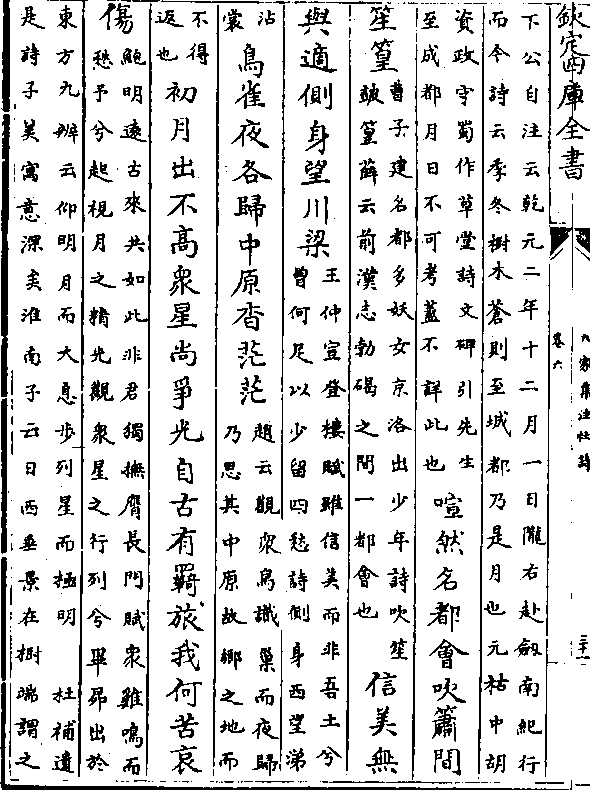 欽定四庫全書
卷六
九家集注杜詩
三十一
下公自注云乾元二年十二月一日隴右赴劍南紀行
而今詩云季冬樹木蒼則至城都乃是月也元祐中胡
資政守蜀作草堂詩文碑引先生
至成都月日不可考蓋不詳此也
喧然名都會吹簫間
笙篁
曹子建名都多妖女京洛出少年詩吹笙
皷篁薛云前漢志勃碣之間一都會也
信美無
與適側身望川梁
王仲宣登樓賦雖信美而非吾土兮
曾何足以少留四愁詩側身西望涕
沾
裳
鳥雀夜各歸中原杳茫茫
趙云觀衆鳥識巢而夜歸
乃思其中原故鄉之地而
不得
返也
初月出不高衆星尚爭光自古有羇旅我何苦哀
傷
鮑明遠古來共如此非君獨撫膺長門賦衆雞鳴而
愁予兮起視月之精光觀衆星之行列兮畢昴出於
東方九辨云仰明月而太息步列星而極明 杜補遺
是詩子美寓意深矣淮南子云日西垂景在樹端謂之